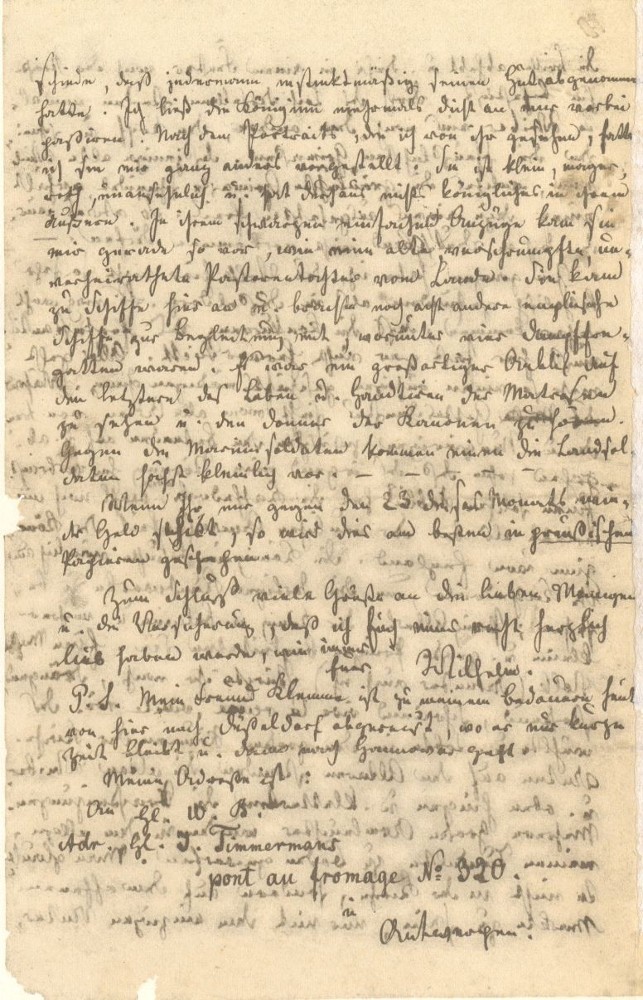 schiede, daß jedermann instinktmäßig seinen Hut abgenommen
hatte. Ich ließ die Königinn mehrmals dicht an mir vorbei
passiren. Nach dem Portraits, die ich von ihr gesehen, hatte
ich sie mir ganz anders vorgestellt. Sie ist klein, mager,
roth, unansehnlich u. hat durchaus nichts königliches in ihrem
Äußern. In ihrem schwarzen einfachen Anzuge kam sie
mir gerade so vor, wie eine alte verschrumpfte, un-
verheirathete Pastorentochter vom Lande. Sie kam
zu Schiffe hier an u. brachte noch acht andere englische
Schiffe zur Begleitung mit, worunter vier Dampffre-
gatten waren. Es war ein großartiger Anblick auf
den letztern das Leben u. Handtiren der Matrosen
zu sehen u. den Donner der Kanonen zu hören.
Gegen die Marinesoldaten kommen einem die Landsol-
daten höchst kleinlich vor. — — — —
Wenn Ihr mir gegen den 23 dieses Monats wie-
der Geld schickt, so wird dies am besten in preußischen
Papieren geschehen.
Zum Schluß viele Grüße an die lieben Meinigen
u. die Versicherung, daß ich Euch immer recht herzlich
lieb haben werde, wie immer
Euer Wilhelm.
P. S. Mein Freund Klemme ist zu meinem Bedauern heut
von hier nach Düßeldorf abgereist, wo er nur kurze
Zeit bleibt u. dann nach Hannover geht.
Meine Adresse ist:
An H. W. B.
Adr. H. J. Timmermans
pont au fromage No 320.
in
Antwerpen.